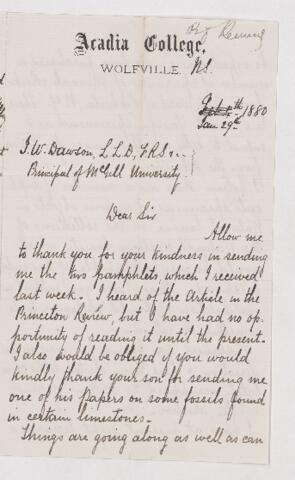 Acadia College,
WOLFVILLE. N.S.
1880
Jan 29th
J. W. Dawson, L.L.D, F.R.S &c.
Principal of McGill University.
Dear Sir
Allow me
to thank you for your kindness in sending
me the two pamphlets, which I received
last week. I heard of the Article in the
Princeton Review, but I have had no op-
portunity of reading it until the present.
I also would be obliged if you would
kindly thank your son for sending me
one of his papers on some fossils found
in certain limestones.-
Things are going along as well as can